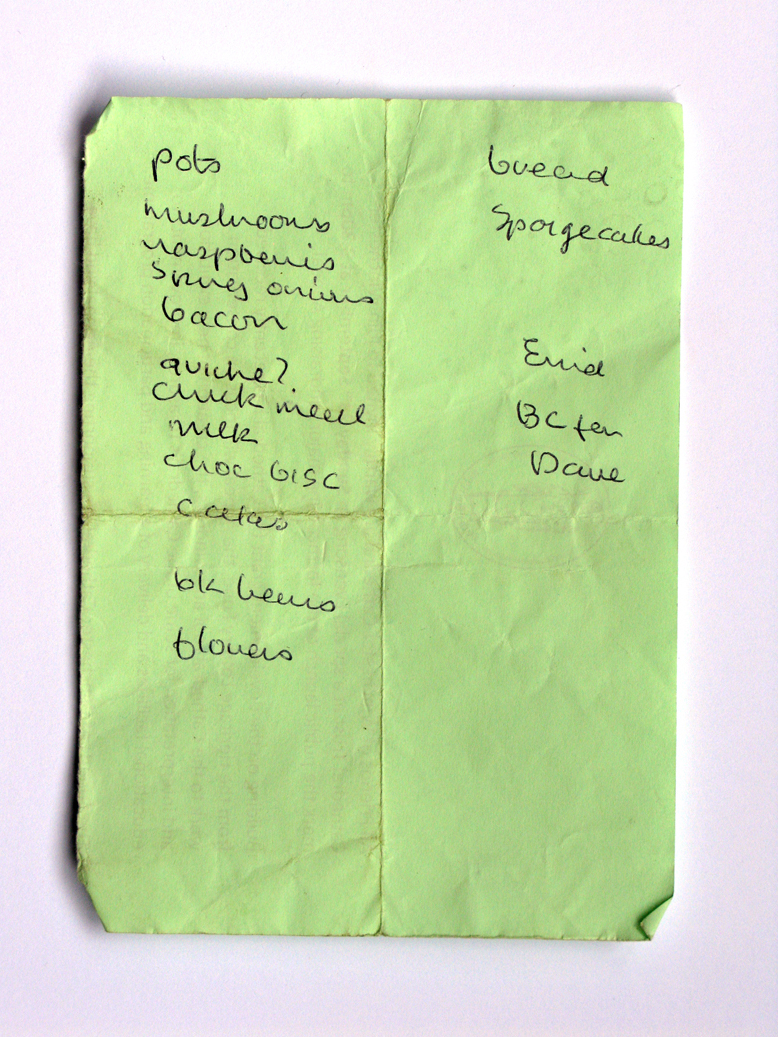 pots
mushrooms
raspberris
Spring onions
bacon
quiche?
chick meal
milk
choc bisc
cakes
bk beans
flowers
bread
Spongecakes
Enid
BC
Dave